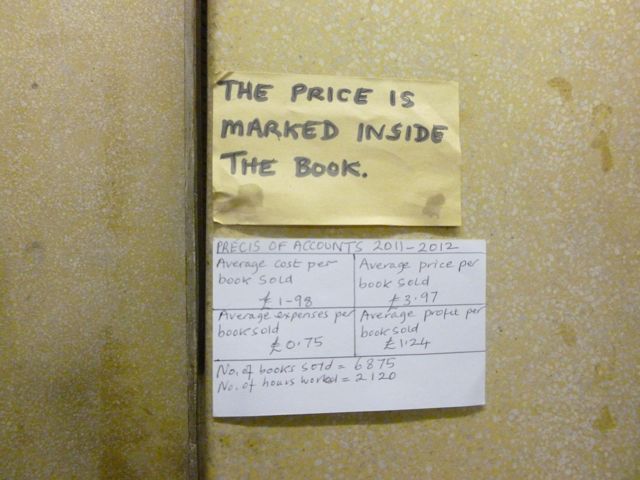 THE PRICE IS
MARKED INSIDE
THE BOOK.
PRECIS OF ACCOUNTS 2011-2012
Average cost per
book sold
£1-98
Average price per
book sold
£3.97
Average expenses per
book sold
£0.75
Average profit per
book sold
£1.24
No. of books sold = 6875
No. of hours worked = 2120